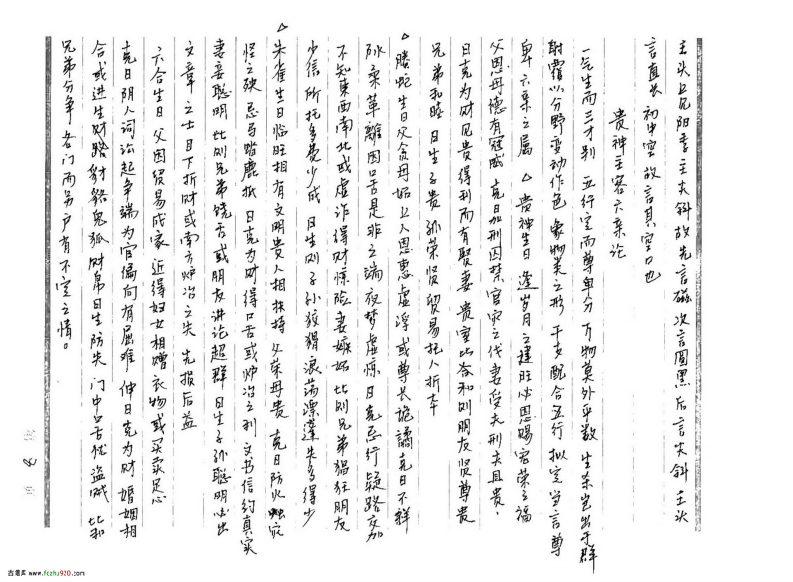 土头上见阴寺主尖斜故先言磁次言圆黑后言尖斜土头
言直长初中空故言其空口也
贵神主客六亲论
一气生而三才别 五行定而尊卑分 万物莫外乎数 生杀岂出于群
射覆以分野变动作色 象物类之形 干支配合五行 拟定当言尊
卑六亲之属 △贵神生日 逢岁月之建旺必恩赐宏荣子福
父恩母德有冠赋 克日加刑囚禁官灾之代妻受夫刑夫且贵,
日克为财见贵得利而有贤妻 贵宝比合和则朋友贤尊贵
兄弟和睦 日生子贵 孙荣贤贸易托人折本
△螣蛇生日父贪母妬上人恩惠虚浮 或尊长诡谲克日不祥
脉乘革离因口舌是非之端夜梦虚惊 日克恶行疑路交加
不知东西南北或虚诈得财惊险 妻嫉妬 比则兄弟猖狂朋友
少信所托多费少成 日生则子孙狡猾浪荡漂蓬失多得少
△朱雀生日临旺相有文明贵人相扶持 父荣母贵 克日防火烛家
怪之殃 忌马踏鹿抵 日克为财得口舌或炉冶之利 文书信约真实
妻妾聪明 比则兄弟饶舌或朋友讲论超群 日生子孙聪明必出
文章之士目下折财或南方炉冶之失 先损后益
六合生日父因贸易成家 近得妇女相赠衣物或买卖足心
克日阴人词讼起争端为官偏向有屈难伸日克为财婚姻相
合或进生财路豺貉兔狐财帛日生防失门中口舌忧盗贼 比和
兄弟分争各门而另户有不定之情。
8
古籍库 www.fozhu920.com